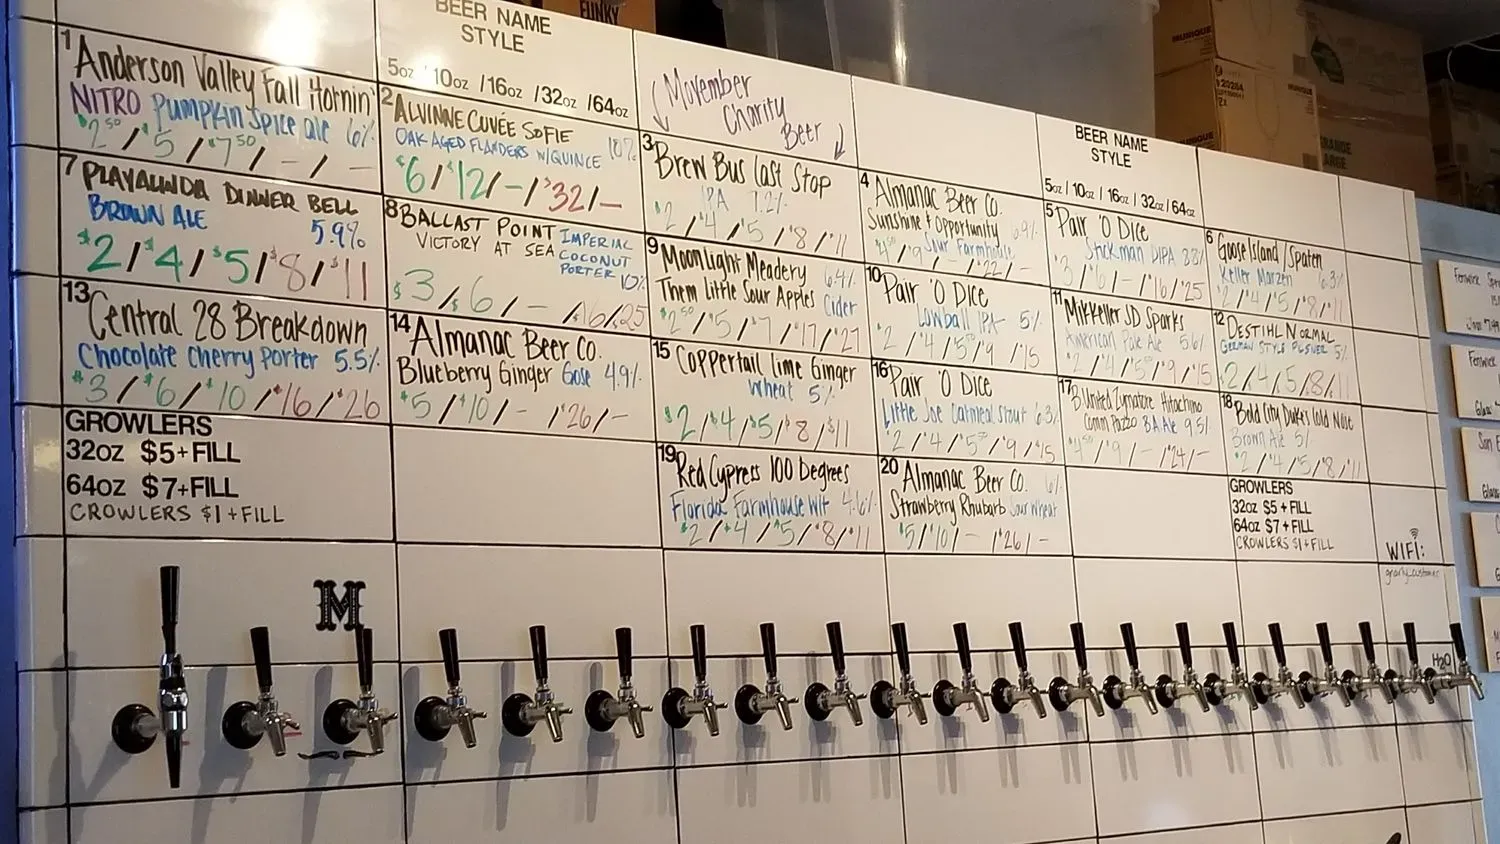 FUNKY
MUNIQUE
MUNIQUE
BEER NAME
STYLE
5oz / 10oz / 16oz / 32oz / 64oz
Movember
Charity
Beer
BEER NAME
STYLE
5oz / 10oz / 16oz / 32oz / 64oz
1 Anderson Valley Fall Hornin'
NITRO Pumpkin Spice ale 6%
$2.50 / $5 / $7.50 / - / -
2 ALVINNE CUVÉE SOFIE
OAK AGED FLANDERS W/QUINCE 10%
$6 / $12 / - / $32 / -
3 Brew Bus Last Stop
IPA 7.2%
$2 / $4 / $5 / $8 / $11
4 Almanac Beer Co.
Sunshine & Opportunity
Sour Farmhouse
5 Pair 'O Dice
Stickman DIPA
$3 / $6 / - / $16 / $25
6 Goose Island / Spaten
Keller Marzen 6.3%
$2 / $4 / $5 / $8 / $11
7 PLAYALINDA DINNER BELL
BROWN ALE 5.9%
$2 / $4 / $5 / $8 / $11
8 BALLAST POINT
VICTORY AT SEA
IMPERIAL
COCONUT
PORTER 10%
$3 / $6 / - / $16 / $25
9 Moonlight Meadery 6.4%
Them Little Sour Apples Cider
$2.50 / $5 / $7 / $17 / $27
10 Pair 'O Dice
Lowball IPA 5%
$2 / $4 / $5.50 / $9 / $15
11 Mikkeller SD Sparks
American Pale Ale 5.6%
$2 / $4 / $5.50 / $9 / $15
12 DESTIHL NORMAL
GERMAN STYLE PILSNER 5%
$2 / $4 / $5 / $8 / $11
13 Central 28 Breakdown
Chocolate Cherry Porter 5.5%
$3 / $6 / $10 / $16 / $26
14 Almanac Beer Co.
Blueberry Ginger Gose 4.9%
$5 / $10 / - / $26 / -
15 Coppertail Lime Ginger
Wheat 5%
$2 / $4 / $5 / $8 / $11
16 Pair 'O Dice
Little Joe Oatmeal Stout 6.3%
$2 / $4 / $5.50 / $9 / $15
17 B. United Zymatore Hitachino
BA Ale 9.5%
$4.50 / $9 / - / $24 / -
18 Bold City Duke's Cold Nose
Brown Ale 5%
$2 / $4 / $5 / $8 / $11
19 Red Cypress 100 Degrees
Florida Farmhouse Wit 4.6%
$2 / $4 / $5 / $8 / $11
20 Almanac Beer Co. 6%
Strawberry Rhubarb Sour Wheat
$5 / $10 / - / $26 / -
GROWLERS
32oz $5+FILL
64oz $7+FILL
CROWLERS $1+FILL
GROWLERS
32oz $5+FILL
64oz $7+FILL
CROWLERS $1+FILL
WIFI:
gnarly_customer
M
H2O